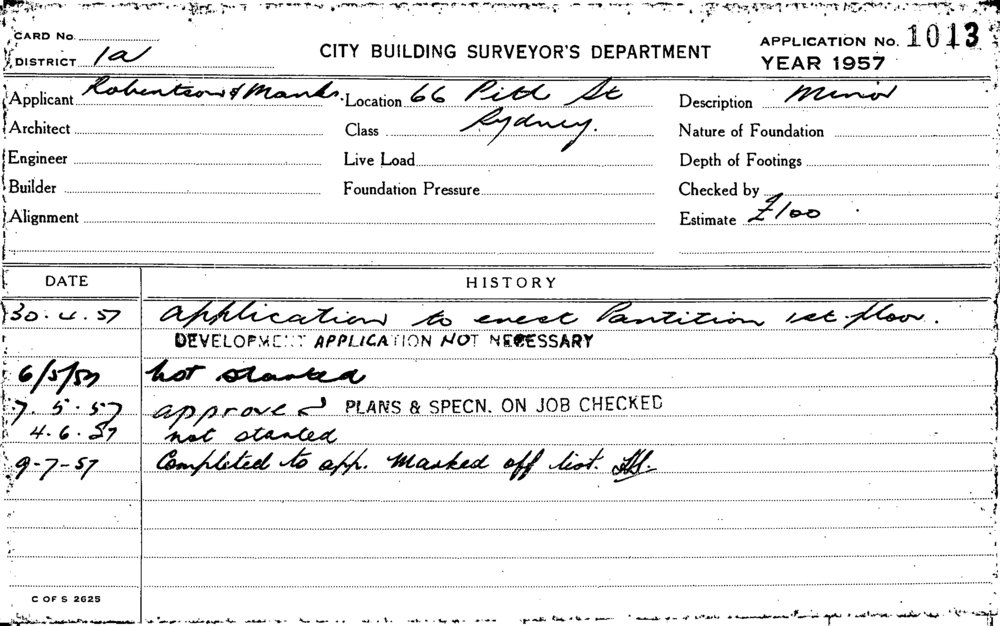 CARD No.
DISTRICT 1a
CITY BUILDING SURVEYOR'S DEPARTMENT
APPLICATION No. 1013
YEAR 1957
Applicant Robertson & Marks. Location 66 Pitt St Description Minor
Architect Class Sydney. Nature of Foundation
Engineer Live Load Depth of Footings
Builder Foundation Pressure Checked by
Alignment Estimate £100
DATE HISTORY
30.4.57 Application to erect Partition 1st floor.
DEVELOPMENT APPLICATION NOT NECESSARY
6/5/57 not started
7.5.57 approved PLANS & SPECN. ON JOB CHECKED
4.6.57 not started
9-7-57 Completed to app. Marked off list.
C OF S 2625